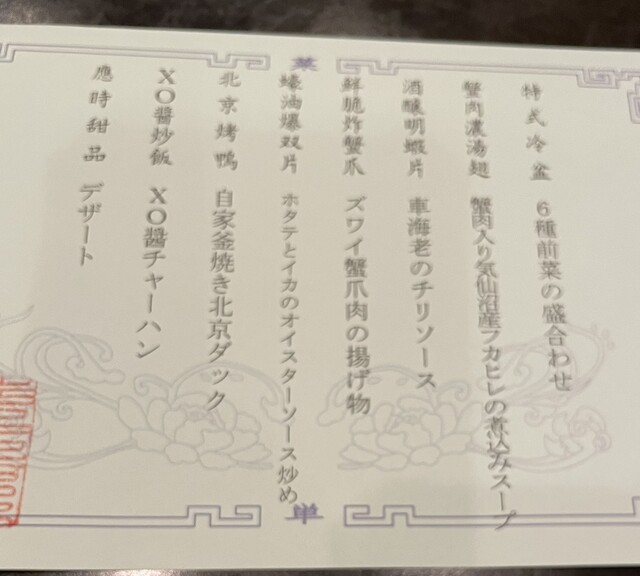 菜
単
特式冷盆 6種前菜の盛合わせ
蟹肉濃湯翅 蟹肉入り気仙沼産フカヒレの煮込みスープ
酒醸明蝦片 車海老のチリソース
鮮脆炸蟹爪 ズワイ蟹爪肉の揚げ物
蠔油爆双片 ホタテとイカのオイスターソース炒め
北京烤鴨 自家釜焼き北京ダック
XO醤炒飯 XO醤チャーハン
應時甜品 デザート